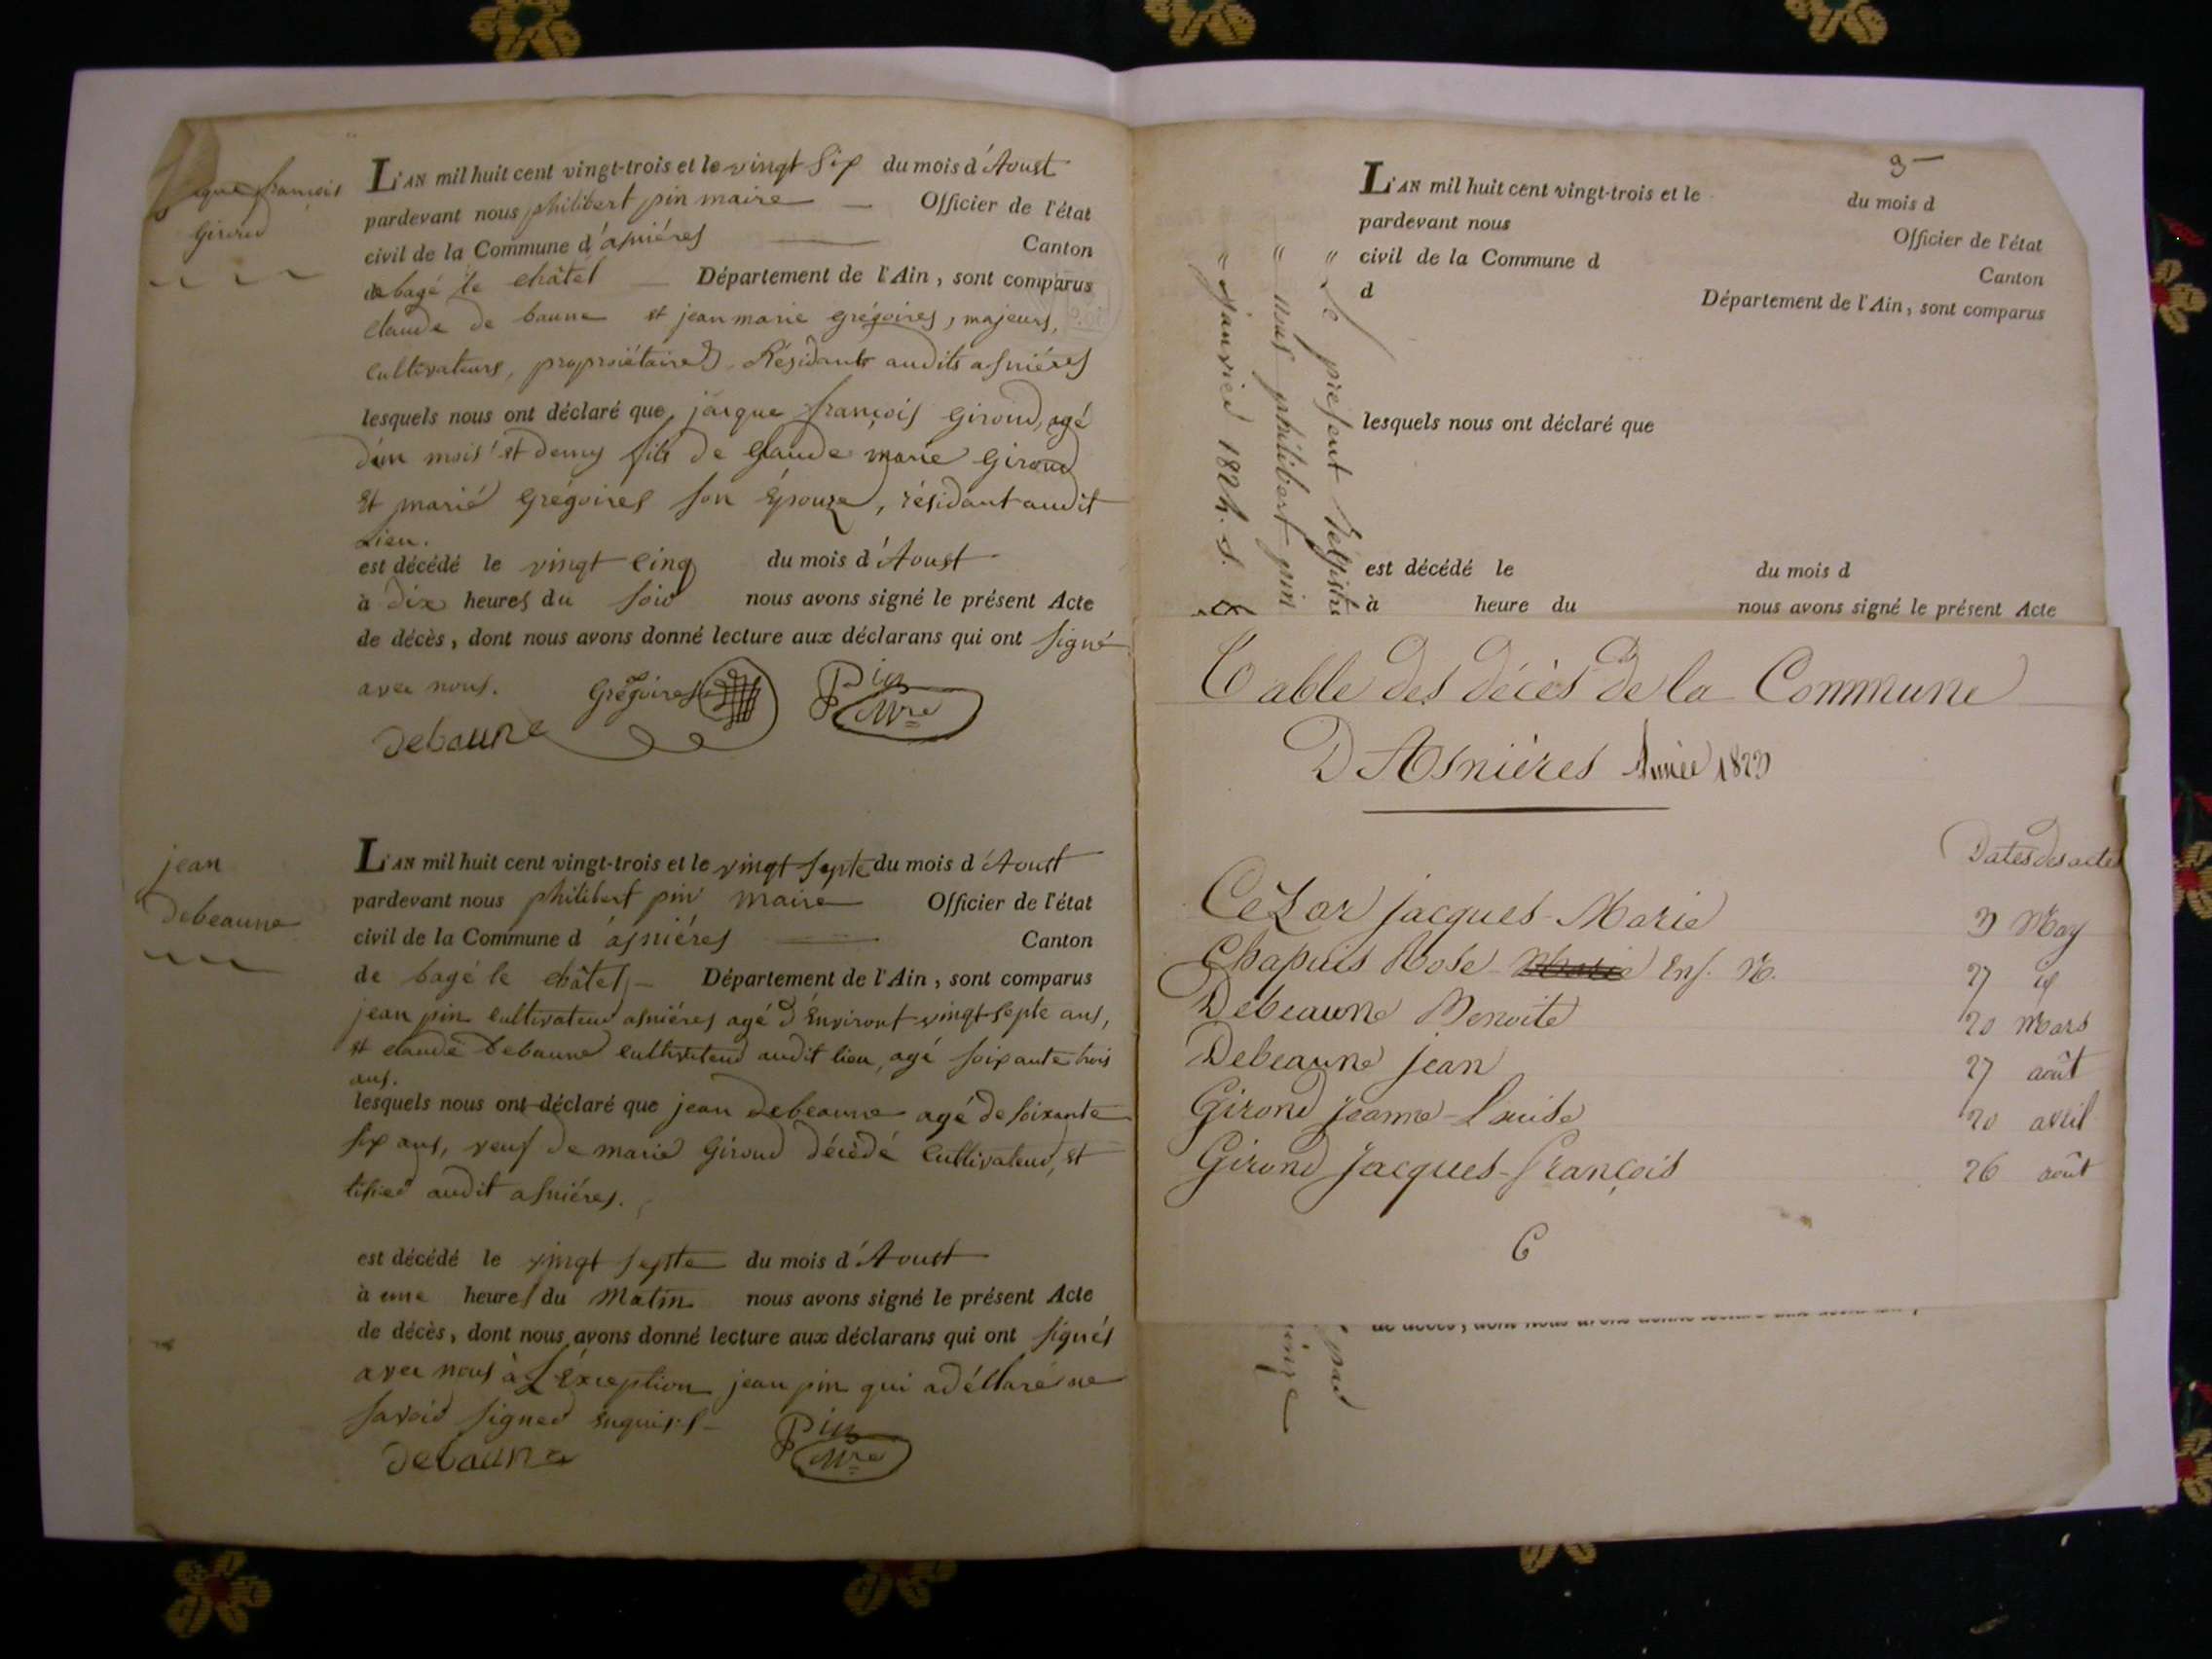 jaque françois
Giroud
L'AN mil huit cent vingt-trois et le vingt six du mois d'Aoust
pardevant nous philibert pin maire Officier de l'état
civil de la Commune d'asniéres Canton
de bagé le châtel Département de l'Ain, sont comparus
Claude de baune et jean marie grégoires, majeurs,
Cultivateurs, propriétaires, Résidants audits asniéres
lesquels nous ont déclaré que, jacque françois Giroud, agé
d'un mois et demy fils de Claude marie Giroud
Et marie Grégoires son Epouze, résidant audit
Lieu.
est décédé le vingt Cinq du mois d'Aoust
à dix heures du soir nous avons signé le présent Acte
de décès, dont nous avons donné lecture aux déclarans qui ont signé
avec nous. Grégoires Pin
Mre
debaune
jean
debeaune
L'AN mil huit cent vingt-trois et le vingt septe du mois d'Aoust
pardevant nous philibert pin maire Officier de l'état
civil de la Commune d'asniéres Canton
de bagé le châtel Département de l'Ain, sont comparus
jean pin Cultivateur asniéres agé d'Environt vingt septe ans,
et claude debaune Cultivateur audit lieu, agé soixante trois
ans.
lesquels nous ont déclaré que jean debeaune agé de soixante
six ans, veuf de marie Giroud décédé Cultivateur, et
tisier audit asniéres.
est décédé le vingt septe du mois d'Aoust
à une heures du Matin nous avons signé le présent Acte
de décès, dont nous avons donné lecture aux déclarans qui ont signés
avec nous à L'Exception jean pin qui a déclaré ne
savoir signer
debaune Pin
Mre
L'AN mil huit cent vingt-trois et le du mois d
pardevant nous Officier de l'état
civil de la Commune d Canton
d Département de l'Ain, sont comparus
lesquels nous ont déclaré que
est décédé le du mois d
à heure du nous avons signé le présent Acte
Le présent Régistre
nous philibert pin
janvier 1824.
par
Table des décès de la Commune
D'Asnières Année 1823
Dates des actes
Cézar jacques-Marie 3 May
Chapuis Rose Marie Enf. N. 27
Debeaune Benoite 20 Mars
Debeaune Jean 27 août
Giroud Jeanne-Louise 20 avril
Giroud Jacques-François 26 août
6